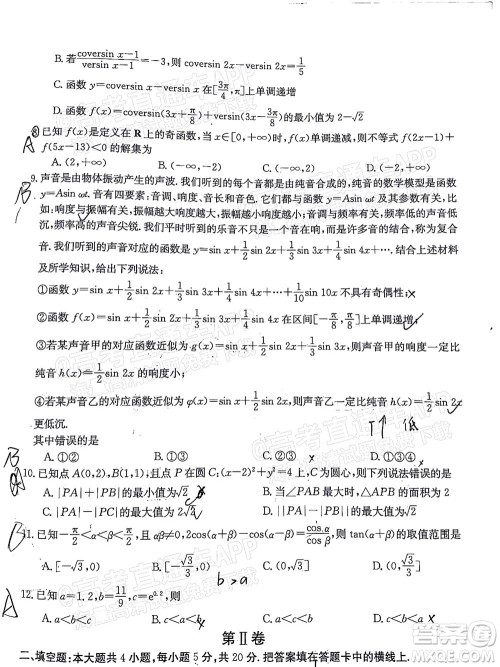 B. 若 coversin x−1 / versin x−1 =−3，则 coversin 2x−versin 2x=1/5
C. 函数 y=coversin x−versin x 在[3π/4,π]上单调递增
D. 函数 f(x)=coversin(3x+π/8)+versin(3x+π/8)的最小值为 2−√2
A
8. 已知 f(x)是定义在 R 上的奇函数，当 x∈[0,+∞)时，f(x)单调递减，则不等式 f(2x−1)+
f(5x−13)<0 的解集为
A. (2,+∞) B. (−∞,−2) C. (−2,+∞) D. (−∞,2)
B
9. 声音是由物体振动产生的声波。我们听到的每个音都是由纯音合成的，纯音的数学模型是函数
y=Asin ωt. 音有四要素：音调、响度、音长和音色. 它们都与函数 y=Asin ωt 及其参数有关，
比如：响度与振幅有关，振幅越大响度越大，振幅越小响度越小；音调与频率有关，频率低的声音低沉，
频率高的声音尖锐. 我们平时听到的乐音不只是一个音在响，而是许多音的结合，称为复合音. 我们听到的声音对应的函数是 y=sin x+1/2 sin 2x+1/3 sin 3x+1/4 sin 4x+⋯. 结合上述材料
及所学知识，给出下列说法：
①函数 y=sin x+1/2 sin 2x+1/3 sin 3x+⋯+1/10 sin 10x 不具有奇偶性；
②函数 f(x)=sin x+1/2 sin 2x+1/4 sin 4x 在区间[−π/8,π/8]上单调递增；
③若某声音甲的函数近似为 g(x)=sin x+1/2 sin 2x+1/3 sin 3x，则声音甲的响度一定比
纯音 h(x)=1/2 sin 2x 的响度小；
④若某声音乙对应的函数近似为 φ(x)=sin x+1/2 sin 2x，则声音乙一定比纯音 h(x)=1/2 sin 2x
更低沉.
T↑ 低
其中错误的是
A. ①② B. ①③ C. ②③ D. ②④
B
10. 已知点 A(0,2)，B(1,1)，且点 P 在圆 C:(x−2)²+y²=4 上，则下列说法错误的是
A. |PA|+|PB|的最小值为√2 B. |PA|+|PB|的最大值为√2
C. |PA|−|PB|的最小值为−√2 D. |PA|−|PB|的最大值为√2
B
11. 已知−π/2<α<β<π/2，且 αβ≠0，2cos(α−β)=cos α/cos β，则 tan(α+β)的取值范围是
A. [−√3,0) B. (−√3,0) C. [−√3/3,0) D. (−√3/3,0)
b>a
A
12. 已知 a=1.2，b=11/9，c=e^0.2，则
A. a<b<c B. c<b<a C. a<c<b D. c<a<b
第Ⅱ卷
二、填空题：本大题共 4 小题，每小题 5 分，共 20 分. 把答案填在答题卡中的横线上.